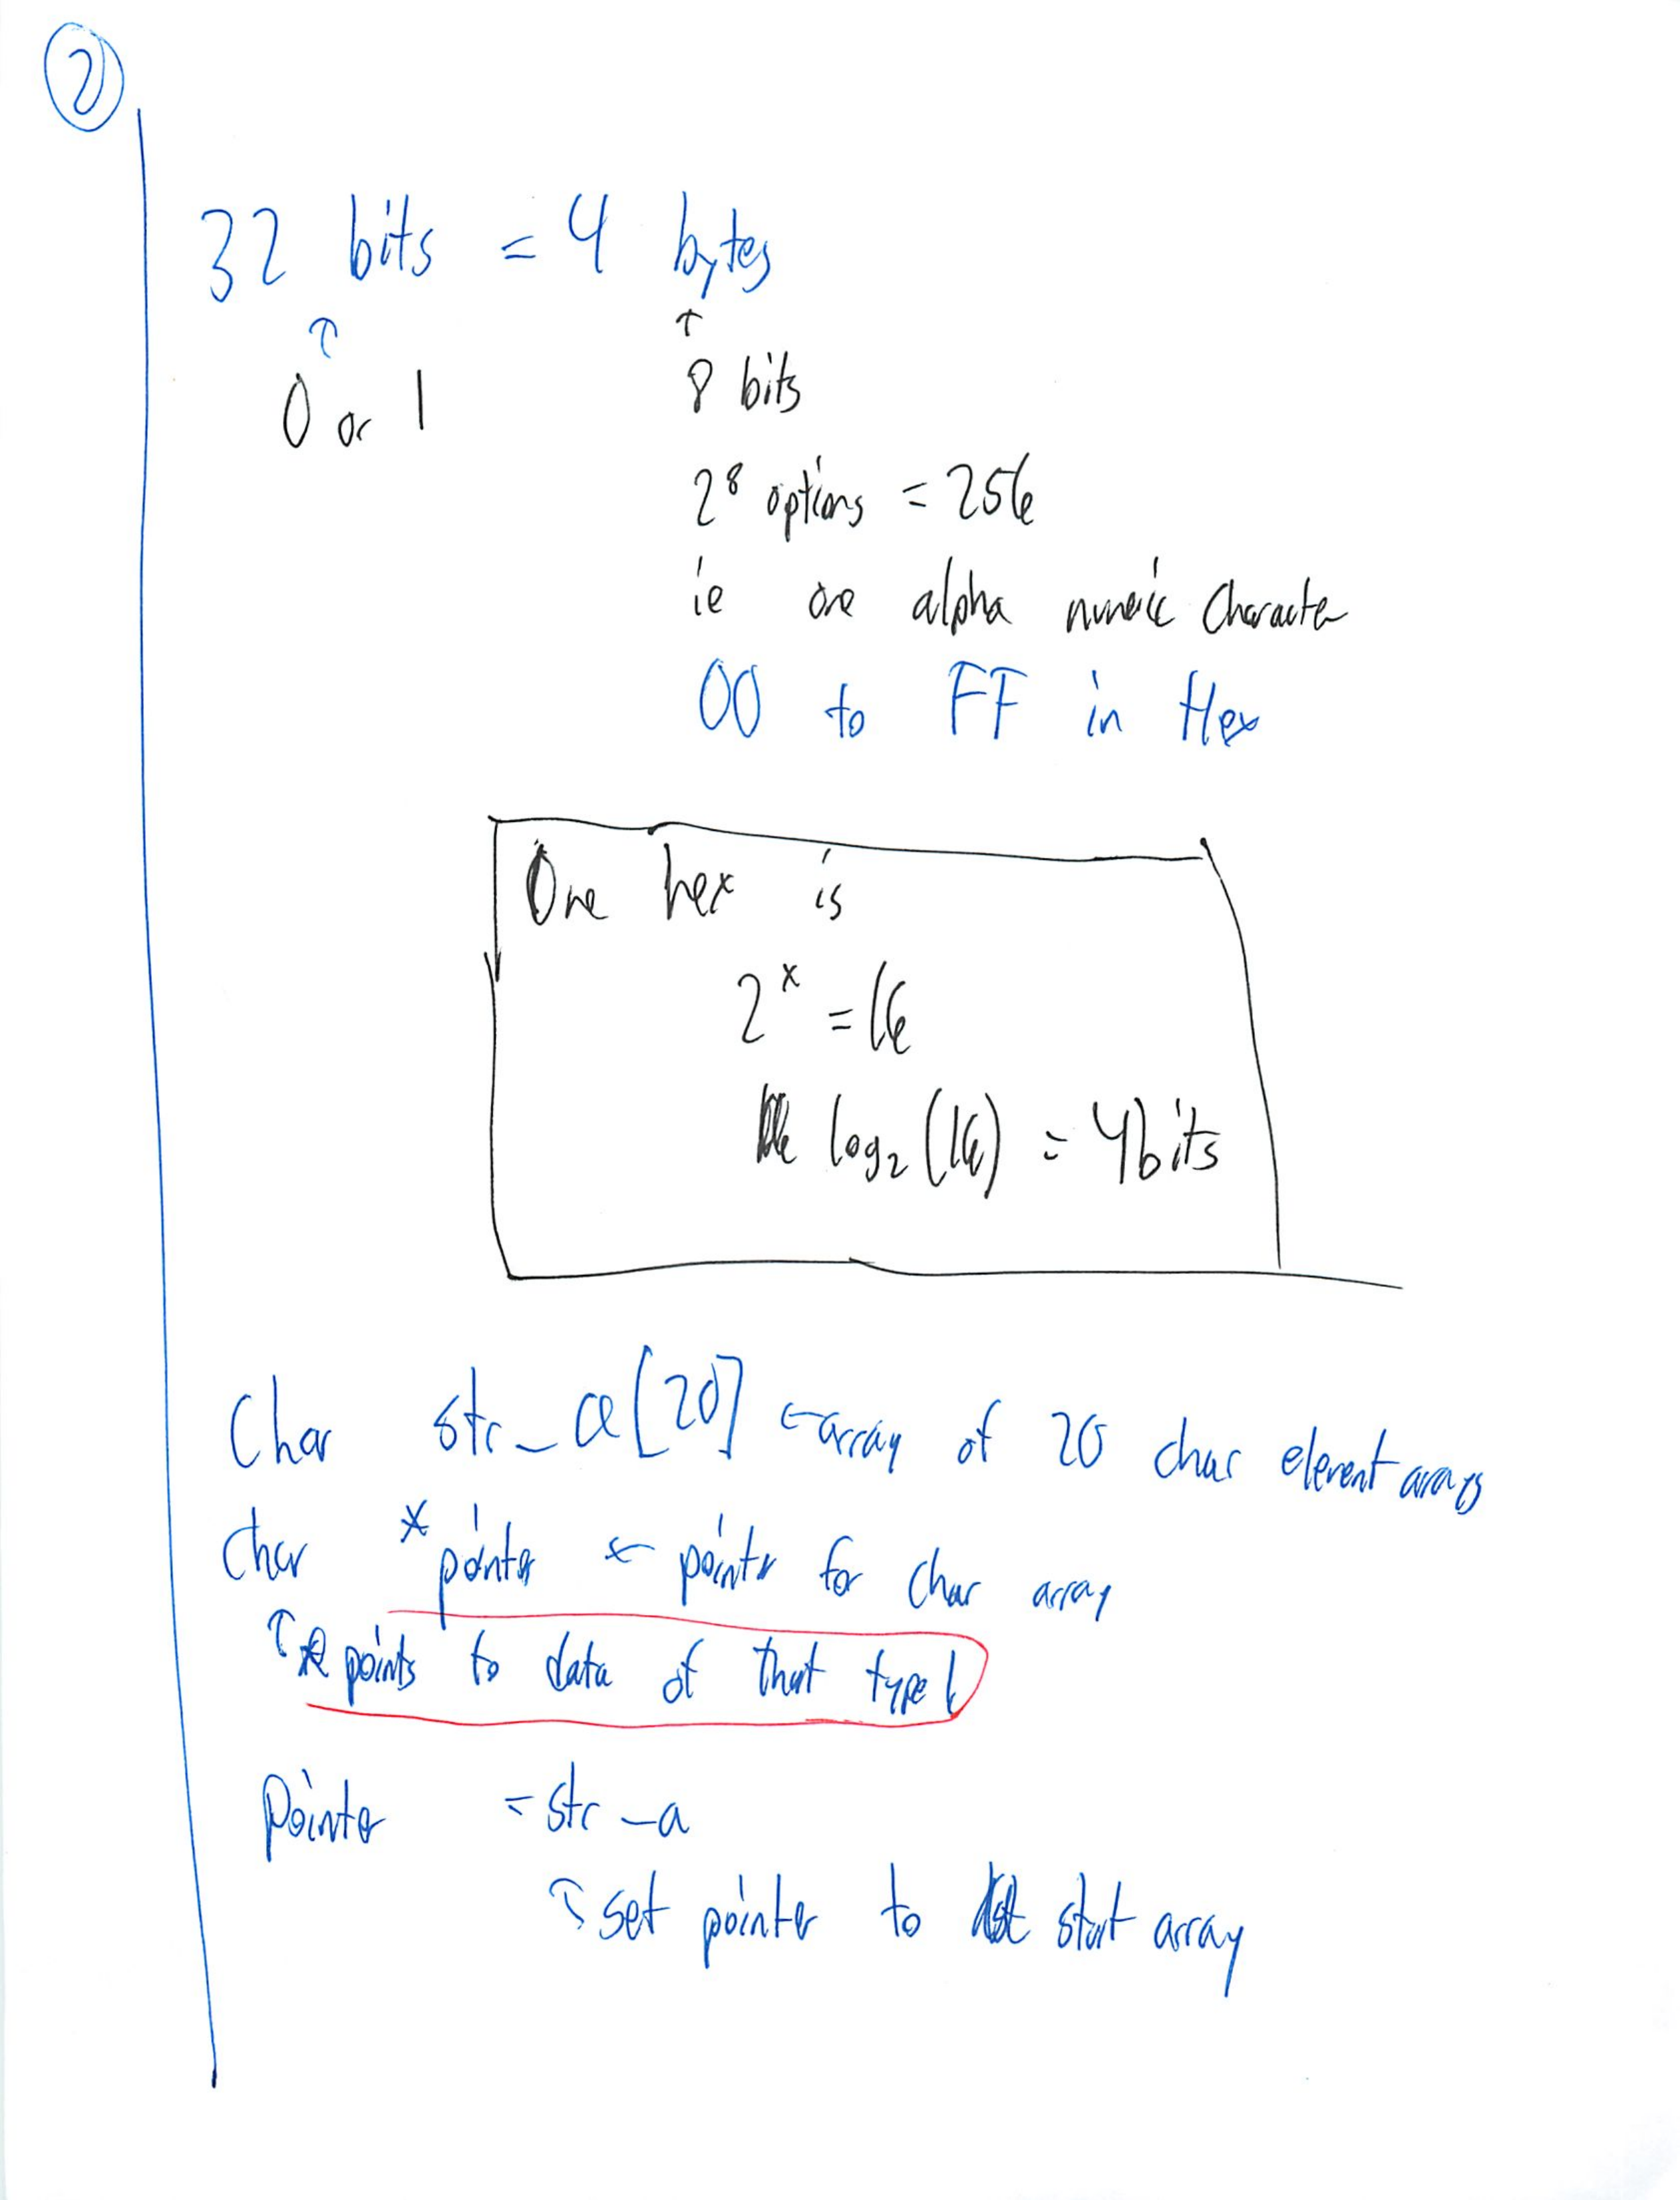 2
32 bits = 4 bytes
↑ ↑
0 or 1 8 bits
2⁸ options = 256
ie one alpha numeric Character
00 to FF in Hex
One hex is
2ˣ = 16
log₂ (16) = 4 bits
Char str_a[20] ← array of 20 char element arrays
Char *pointer ← pointer for char array
↑ points to data of that type!
Pointer = str_a
↑ set pointer to start array